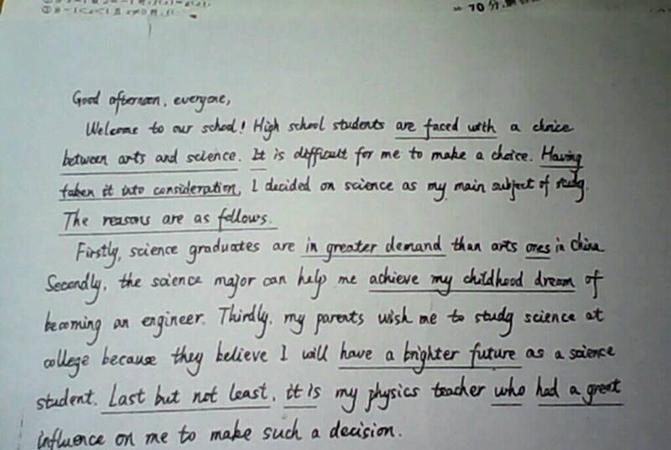 70分
Good afternoon, everyone,
Welcome to our school! High school students are faced with a choice
between arts and science. It is difficult for me to make a choice. Having
taken it into consideration, I decided on science as my main subject of study.
The reasons are as follows.
Firstly, science graduates are in greater demand than arts ones in China
Secondly, the science major can help me achieve my childhood dream of
becoming an engineer. Thirdly, my parents wish me to study science at
college because they believe I will have a brighter future as a science
student. Last but not least, it is my physics teacher who had a great
influence on me to make such a decision.